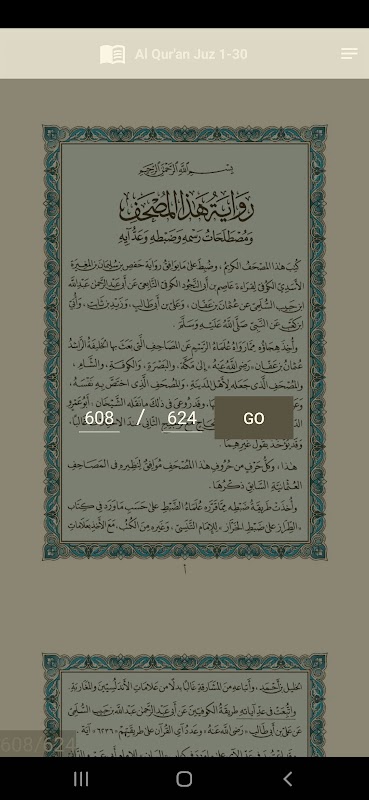 Al Qur'an Juz 1-30
بِسْمِ ٱللَّهِ ٱلرَّحْمَٰنِ ٱلرَّحِيمِ
رِوَايَةُ هَذَا المُصْحَفِ
وَمُصْطَلَحَاتُ رَسْمِهِ وَضَبْطِهِ وَعَدِّ آيِهِ
كُتِبَ هَذَا المُصْحَفُ الكَرِيمُ، وَضُبِطَ عَلَى مَا يُوَافِقُ رِوَايَةَ حَفْصِ بْنِ سُلَيْمَانَ بْنِ المُغِيرَةِ
الأَسَدِيِّ الكُوفِيِّ لِقِرَاءَةِ عَاصِمِ بْنِ أَبِي النَّجُودِ الكُوفِيِّ التَّابِعِيِّ عَنْ أَبِي عَبْدِ الرَّحْمَنِ عَبْدِ اللَّهِ
ابْنِ حَبِيبٍ السُّلَمِيِّ عَنْ عُثْمَانَ بْنِ عَفَّانَ، وَعَلِيِّ بْنِ أَبِي طَالِبٍ، وَزَيْدِ بْنِ ثَابِتٍ، وَأُبَيِّ
ابْنِ كَعْبٍ عَنِ النَّبِيِّ صَلَّى اللَّهُ عَلَيْهِ وَسَلَّمَ.
وَأُخِذَ هِجَاؤُهُ مِمَّا رَوَاهُ عُلَمَاءُ الرَّسْمِ عَنِ المَصَاحِفِ الَّتِي بَعَثَ بِهَا الخَلِيفَةُ الرَّاشِدُ
عُثْمَانُ بْنُ عَفَّانَ «رَضِيَ اللَّهُ عَنْهُ» إِلَى مَكَّةَ، وَالبَصْرَةِ، وَالكُوفَةِ، وَالشَّامِ،
وَالمُصْحَفِ الَّذِي جَعَلَهُ لِأَهْلِ المَدِينَةِ، وَالمُصْحَفِ الَّذِي اخْتَصَّ بِهِ نَفْسَهُ،
وَقَدْ رُوعِيَ فِي ذَلِكَ مَا نَقَلَهُ الشَّيْخَانِ أَبُو عَمْرٍو
608 / 624 GO
وَقَدْ يُؤْخَذُ بِقَوْلِ غَيْرِهِمَا.
هَذَا، وَكُلُّ حَرْفٍ مِنْ حُرُوفِ هَذَا المُصْحَفِ مُوَافِقٌ لِنَظِيرِهِ فِي المَصَاحِفِ
العُثْمَانِيَّةِ السَّابِقِ ذِكْرُهَا.
وَأُخِذَتْ طَرِيقَةُ ضَبْطِهِ مِمَّا قَرَّرَهُ عُلَمَاءُ الضَّبْطِ عَلَى حَسَبِ مَا وَرَدَ فِي كِتَابِ
«الطِّرَازِ عَلَى ضَبْطِ الخَرَّازِ» لِلْإِمَامِ التَّنَسِيِّ، وَغَيْرِهِ مِنَ الكُتُبِ، مَعَ الأَخْذِ بِعَلَامَاتِ
أ
الخَلِيلِ بْنِ أَحْمَدَ، وَأَتْبَاعِهِ مِنَ المَشَارِقَةِ غَالِبًا بَدَلًا مِنْ عَلَامَاتِ الأَنْدَلُسِيِّينَ وَالمَغَارِبَةِ.
وَاتُّبِعَتْ فِي عَدِّ آيَاتِهِ طَرِيقَةُ الكُوفِيِّينَ عَنْ أَبِي عَبْدِ الرَّحْمَنِ عَبْدِ اللَّهِ بْنِ حَبِيبٍ السُّلَمِيِّ
عَنْ عَلِيِّ بْنِ أَبِي طَالِبٍ «رَضِيَ اللَّهُ عَنْهُ» وَعَدَدُ آيِ القُرْآنِ عَلَى طَرِيقَتِهِمْ «٦٢٣٦» آيَةً.
608/624